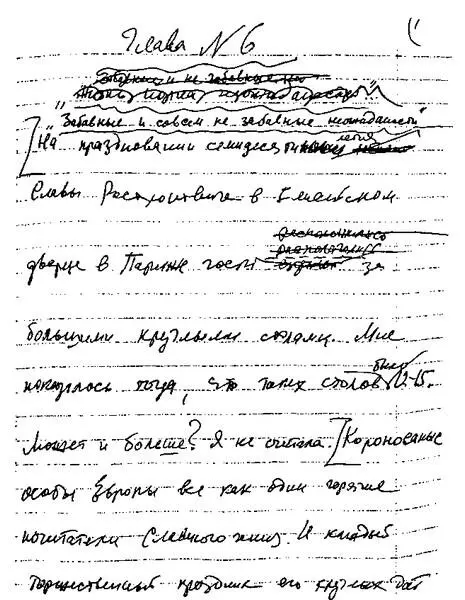 Глава N 6
"Забавные и совсем не забавные неожиданности"
На праздновании семидесятилетия
Славы Ростроповича в Елисейском
дворце в Париже гости за
большими круглыми столами. Мне
показалось тогда, что таких столов было 12-15.
Может и больше? Я не считала. Коронованые
особы Европы все как один горячие
почитатели Славиного
торжественный праздник его круглых дат